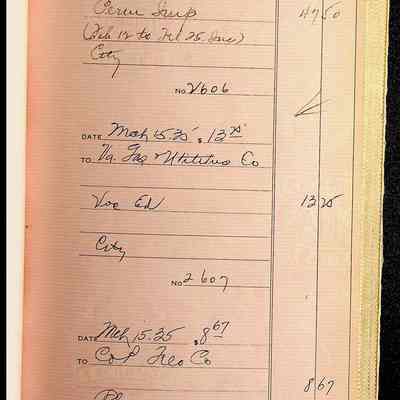 47 50
(Feb 12 to Feb 25 Inc)
City
No 2606
DATE Mch 15.35 $ 13 25
TO Va. Gas & Utilities Co
Voc Ed 13 25
City
No 2607
DATE Mch 15.35 $ 8 67
TO Co
8 67